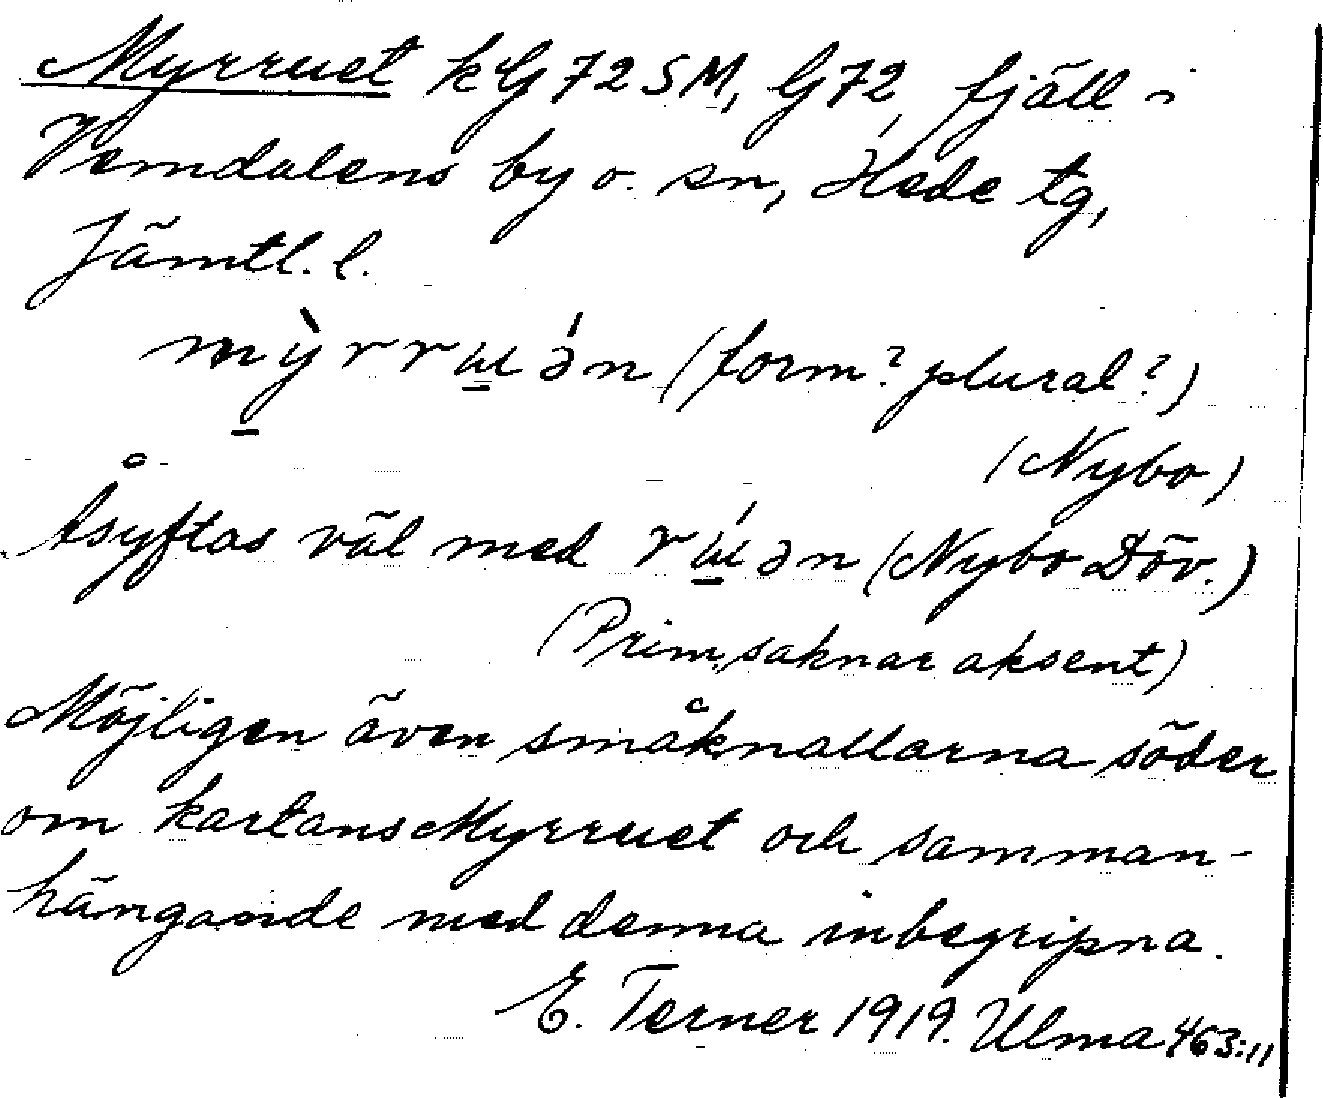 Myrruet kG72SM, G72, fjäll i
Vemdalens by o. sn, Hede tg,
Jämtl. l.
mỳ̠rrɯ̠ə́n (form? plural?)
(Nybo)
Åsyftas väl med rɯ̠́ən (Nybo Döv.)
(Prim. saknar aksent)
Möjligen även småknallarna söder
om kartans Myrruet och samman-
hängande med denna inbegripna.
E. Terner 1919. Ulma 463:11